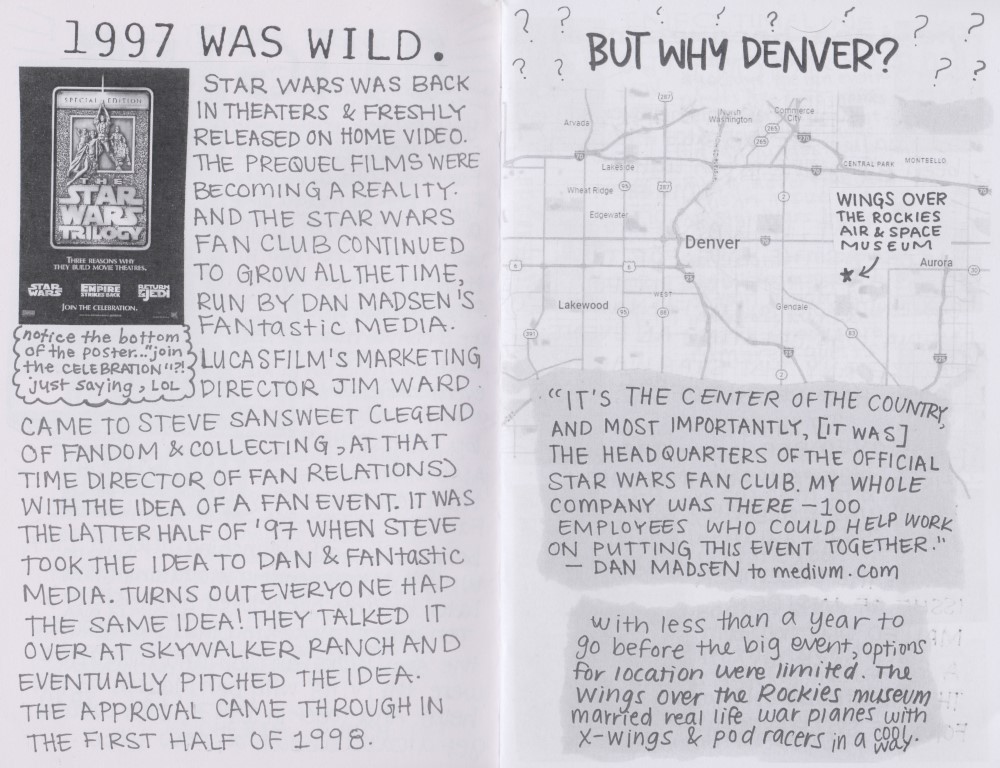 1997 WAS WILD.
SPECIAL EDITION
THE
STAR
WARS
TRILOGY
THREE REASONS WHY
THEY BUILD MOVIE THEATRES.
STAR WARS EMPIRE STRIKES BACK RETURN OF THE JEDI
JOIN THE CELEBRATION.
notice the bottom
of the poster..."join
the CELEBRATION"?!
just saying, LOL
STAR WARS WAS BACK
IN THEATERS & FRESHLY
RELEASED ON HOME VIDEO.
THE PREQUEL FILMS WERE
BECOMING A REALITY.
AND THE STAR WARS
FAN CLUB CONTINUED
TO GROW ALL THE TIME,
RUN BY DAN MADSEN'S
FANtastic MEDIA.
LUCASFILM'S MARKETING
DIRECTOR JIM WARD
CAME TO STEVE SANSWEET (LEGEND
OF FANDOM & COLLECTING, AT THAT
TIME DIRECTOR OF FAN RELATIONS)
WITH THE IDEA OF A FAN EVENT. IT WAS
THE LATTER HALF OF '97 WHEN STEVE
TOOK THE IDEA TO DAN & FANtastic
MEDIA. TURNS OUT EVERYONE HAD
THE SAME IDEA! THEY TALKED IT
OVER AT SKYWALKER RANCH AND
EVENTUALLY PITCHED THE IDEA.
THE APPROVAL CAME THROUGH IN
THE FIRST HALF OF 1998.
? ? ? ? ? ? ? ?
BUT WHY DENVER?
? ? ? ?
287
Arvada
North
Washington
Commerce
City
265
265
270
70
Lakeside
70
CENTRAL PARK
MONTBELLO
70
Wheat Ridge
95
287
2
Edgewater
WINGS OVER
THE ROCKIES
AIR & SPACE
MUSEUM
Denver
6
6
Aurora
30
WEST
Lakewood
95
88
Glendale
391
83
2
"IT'S THE CENTER OF THE COUNTRY,
AND MOST IMPORTANTLY, [IT WAS]
THE HEADQUARTERS OF THE OFFICIAL
STAR WARS FAN CLUB. MY WHOLE
COMPANY WAS THERE — 100
EMPLOYEES WHO COULD HELP WORK
ON PUTTING THIS EVENT TOGETHER."
— DAN MADSEN to medium.com
with less than a year to
go before the big event, options
for location were limited. The
Wings over the Rockies museum
married real life war planes with
X-wings & pod racers in a cool
way.